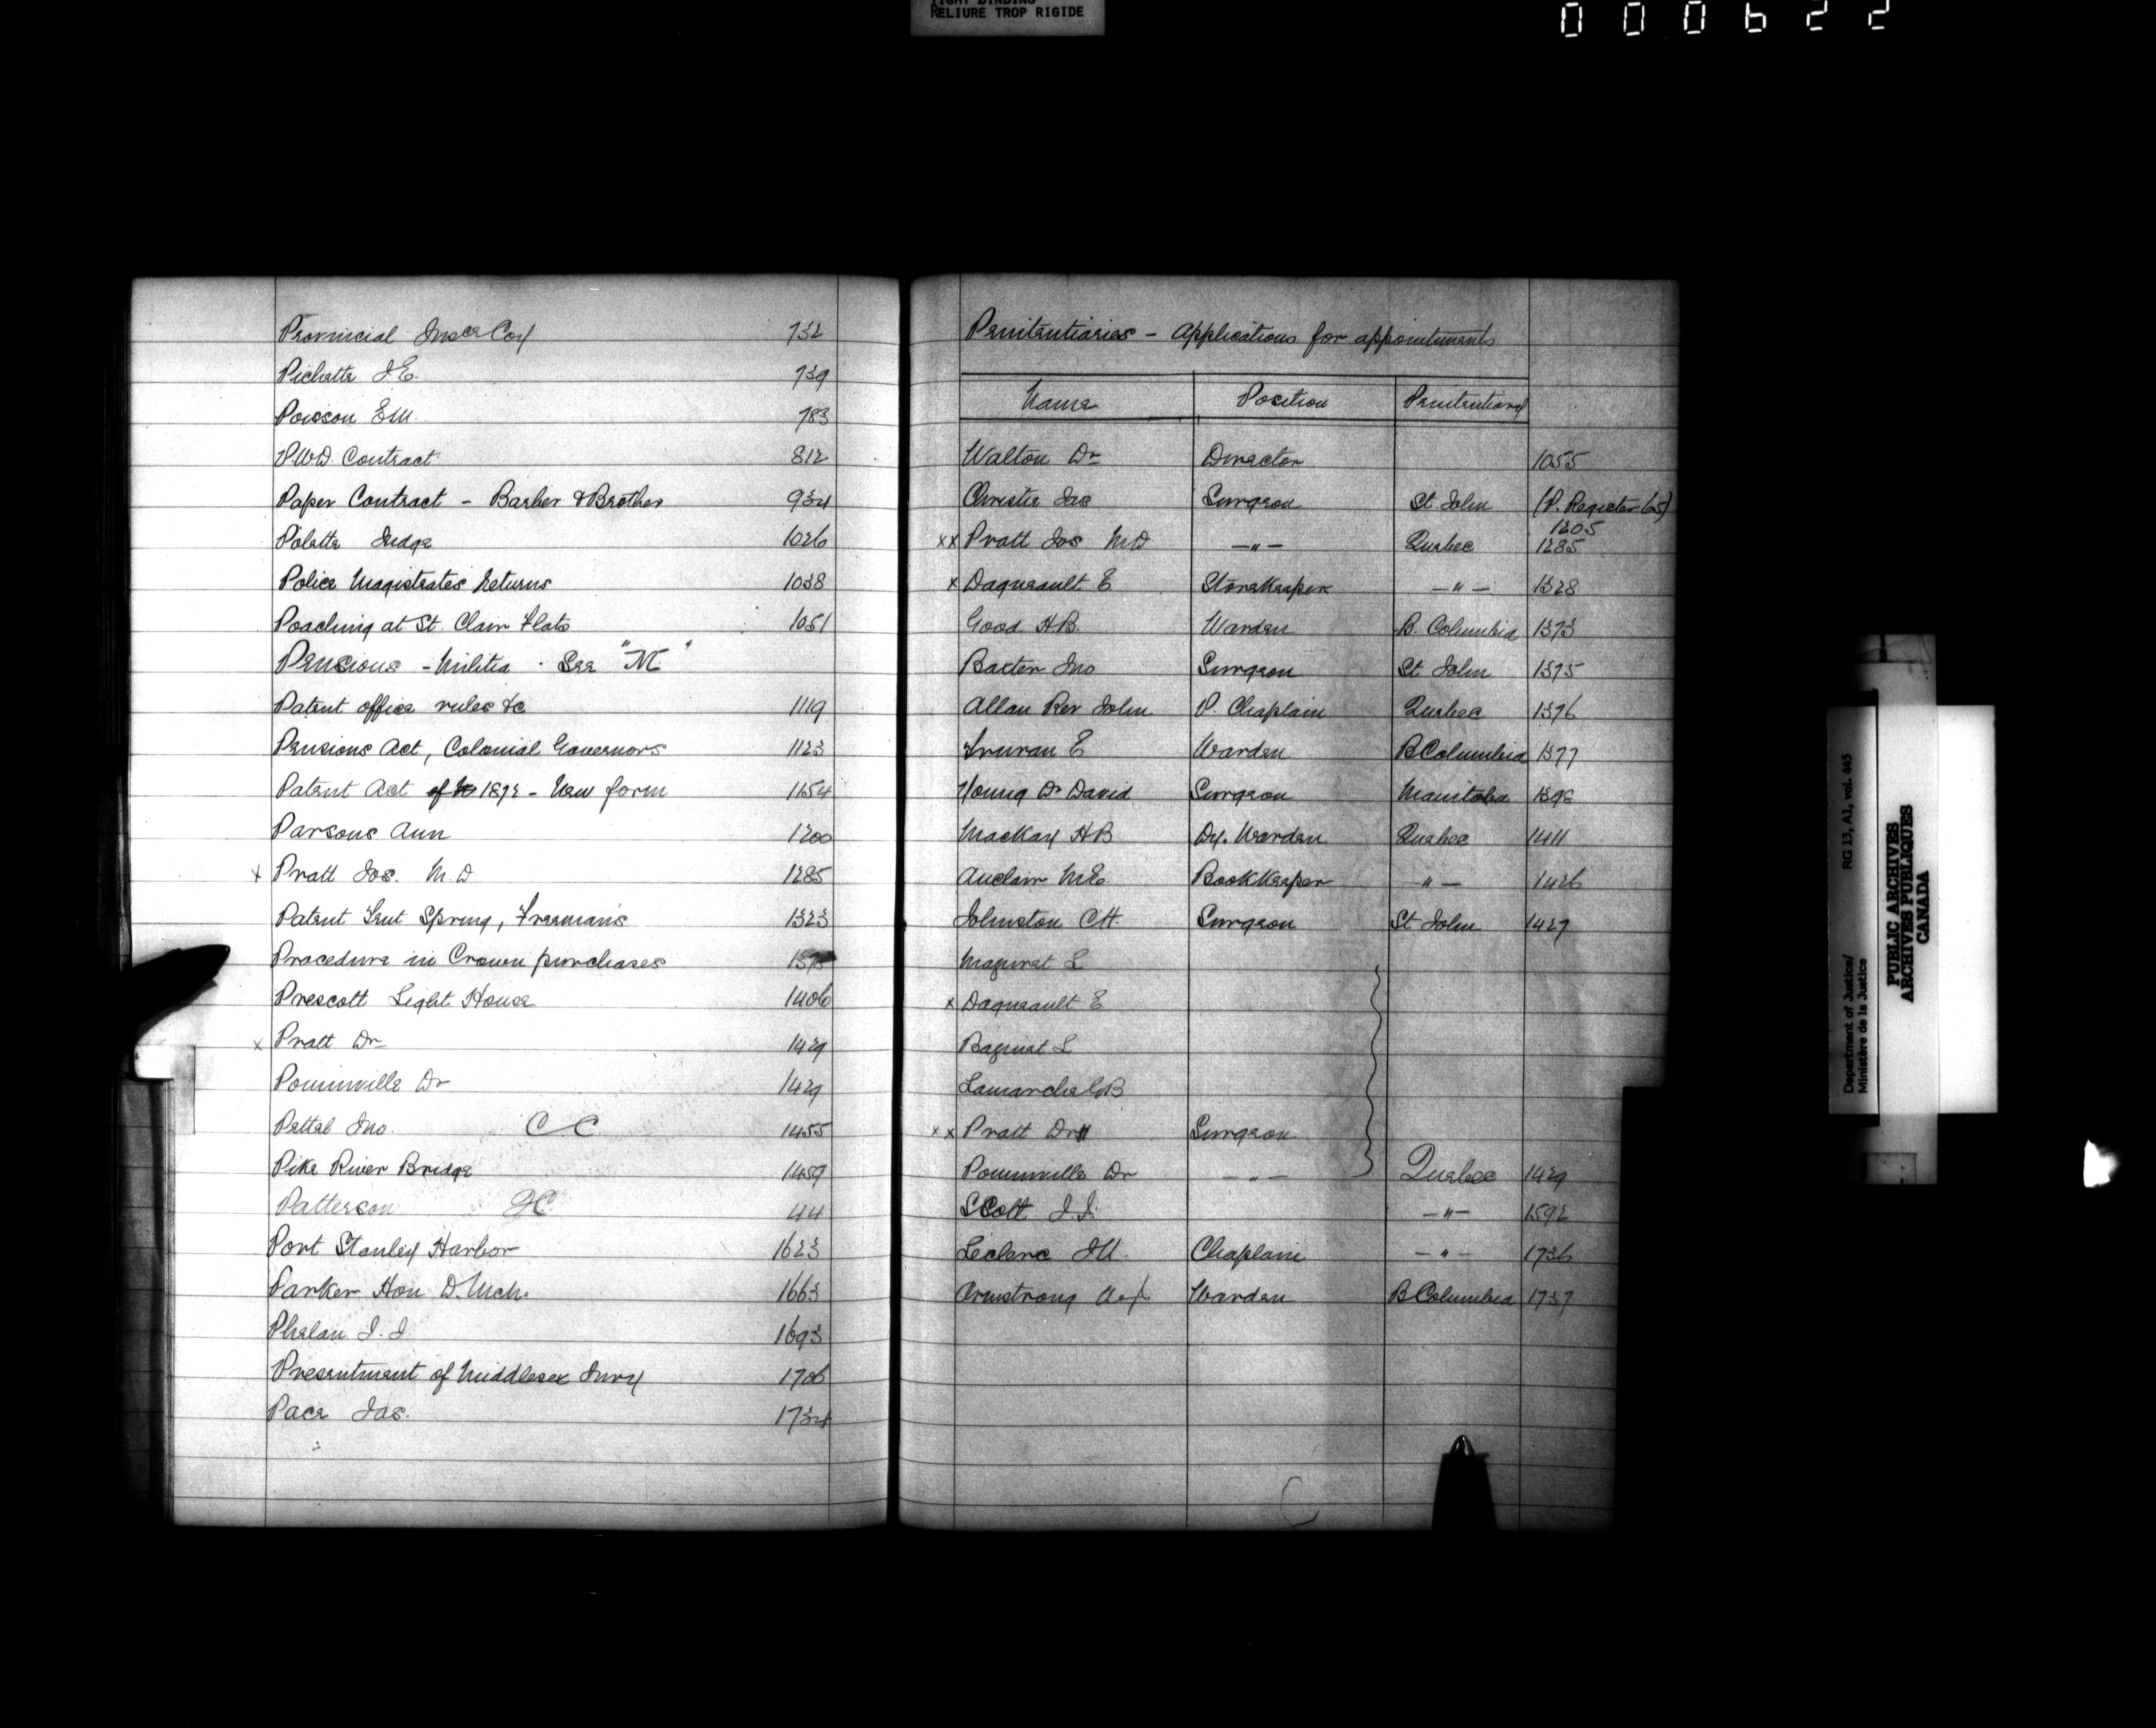 TIGHT BINDING
RELIURE TROP RIGIDE
000622
Provincial Insce Coy 732
Pichette J.E. 739
Poisson E.M. 783
P.W.D. Contract 812
Paper Contract - Barber & Brother 934
Polette Judge 1026
Police Magistrates Returns 1038
Poaching at St. Clair Flats 1051
Pensions - Militia - See "M"
Patent office rules &c 1119
Pensions Act, Colonial Governors 1123
Patent Act of 1872 - New form 1154
Parsons Ann 1200
x Pratt Jos. M.D 1285
Patent Spring, Freeman's 1323
Procedure in Crown purchases
Prescott Light House 1406
x Pratt Dr 1429
Pominville Dr 1429
Pettel Jno. C C 1455
Pike River Bridge 1459
Patterson J C 44
Port Stanley Harbor 1623
Parker Hon D. McN. 1663
Phelan J. J 1693
Presentment of Middlesex Jury 1706
Pace Jas. 1734
Penitentiaries - Applications for appointments
Name Position Penitentiary
Walton Dr Director 1055
Christie Jas Surgeon St John (P. Register 65) 1205
xx Pratt Jos M.D —"— Quebec 1285
x Dagneault E Storekeeper —"— 1328
Good H.B. Warden B. Columbia 1373
Baxter Jno Surgeon St John 1375
Allan Rev John P. Chaplain Quebec 1376
E Warden B Columbia 1377
Young Dr David Surgeon Manitoba 1398
MacKay H B Dy. Warden Quebec 1411
Auclair M.E. Bookkeeper "— 1426
Johnston C H. Surgeon St John 1427
L
x Dagneault E
L
Lamarche B
xx Pratt Dr Surgeon
Pominville Dr —"— Quebec 1429
Scott J. J. —"— 1592
Leclerc J.U. Chaplain —"— 1736
Armstrong Warden B Columbia 1737
Department of Justice/ RG 13, A1, vol. 445
Ministère de la Justice
PUBLIC ARCHIVES
ARCHIVES PUBLIQUES
CANADA